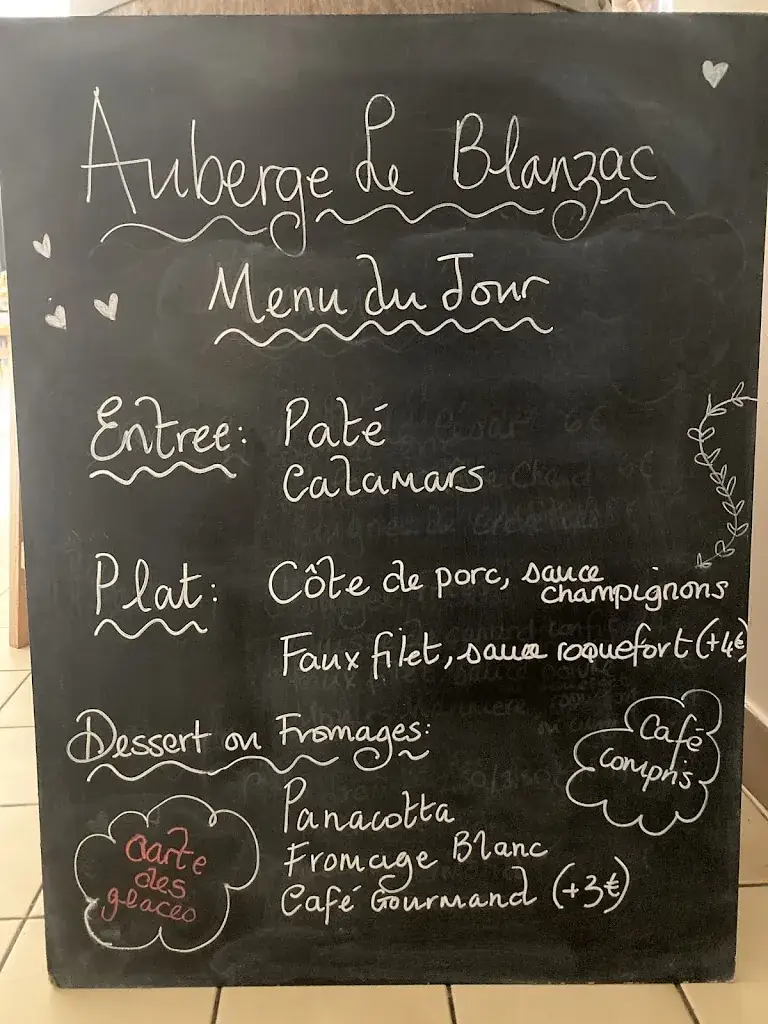 Auberge Le Blanzac
Menu du Jour
Entree: Paté
Calamars
Plat: Côte de porc, sauce
champignons
Faux filet, sauce roquefort (+4€)
Dessert ou Fromages:
Café
compris
Panacotta
Fromage Blanc
Café Gourmand (+3€)
Carte
des
glaces